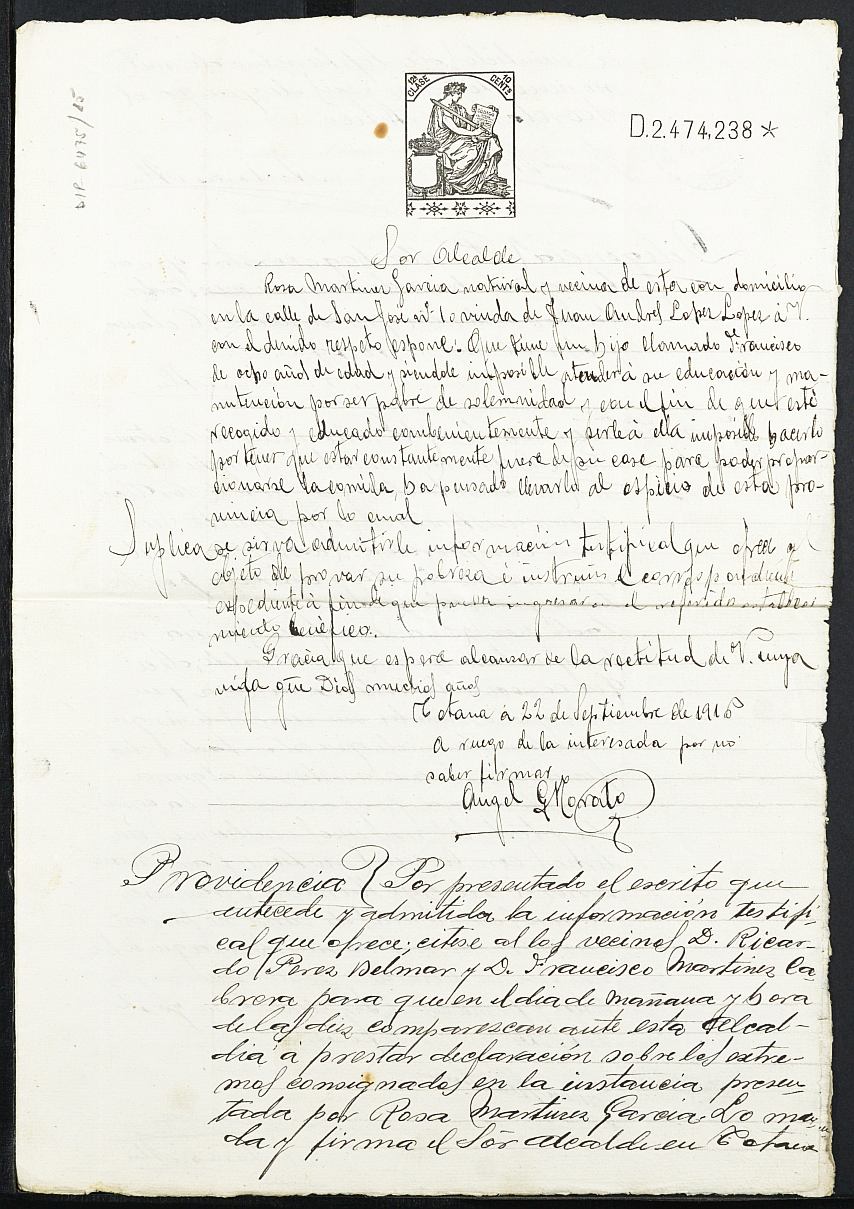 12ª CLASE
10 CENTS
D.2.474,238 *
DIP 6475/25
Sor Alcalde
Rosa Martinez Garcia natural y vecina de esta con domicilio
en la calle de San José nº 10 viuda de Juan Andres Lopez Lopez á V.
con el devido respeto espone: Que tiene un hijo llamado Francisco
de ocho años de edad y siendole imposible atender á su educación y ma-
nutención por ser pobre de solemnidad y con el fin de que esté
recogido y educado combenientemente y serle á ella imposible hacerlo
por tener que estar constantemente fuera de su casa para poder propor-
cionarse la comida, ha pensado llevarlo al ospicio de esta pro-
vincia por lo cual
Suplica se sirva admitirle información testifical que ofrece al
objeto de provar su pobreza é instruir el correspondiente
expediente á fin de que pueda ingresar en el referido estableci
miento benéfico.
Gracia que espera alcanzar de la rectitud de V. cuya
vida gûe Dios muchos años
Totana á 22 de Septiembre de 1916
A ruego de la interesada por no
saber firmar
Angel G Morato
Providencia } Por presentado el escrito que
antecede y admitida la información testifi-
cal que ofrece; citese al los vecinos D. Ricar-
do Perez Delmar y D. Francisco Martinez Ca-
brera para que en el dia de mañana y hora
de las diez comparezcan ante esta Alcal-
dia á prestar declaración sobre los extre-
mos consignados en la instancia presen-
tada por Rosa Martinez Garcia. Lo man-
da y firma el Sōr Alcalde en Totana